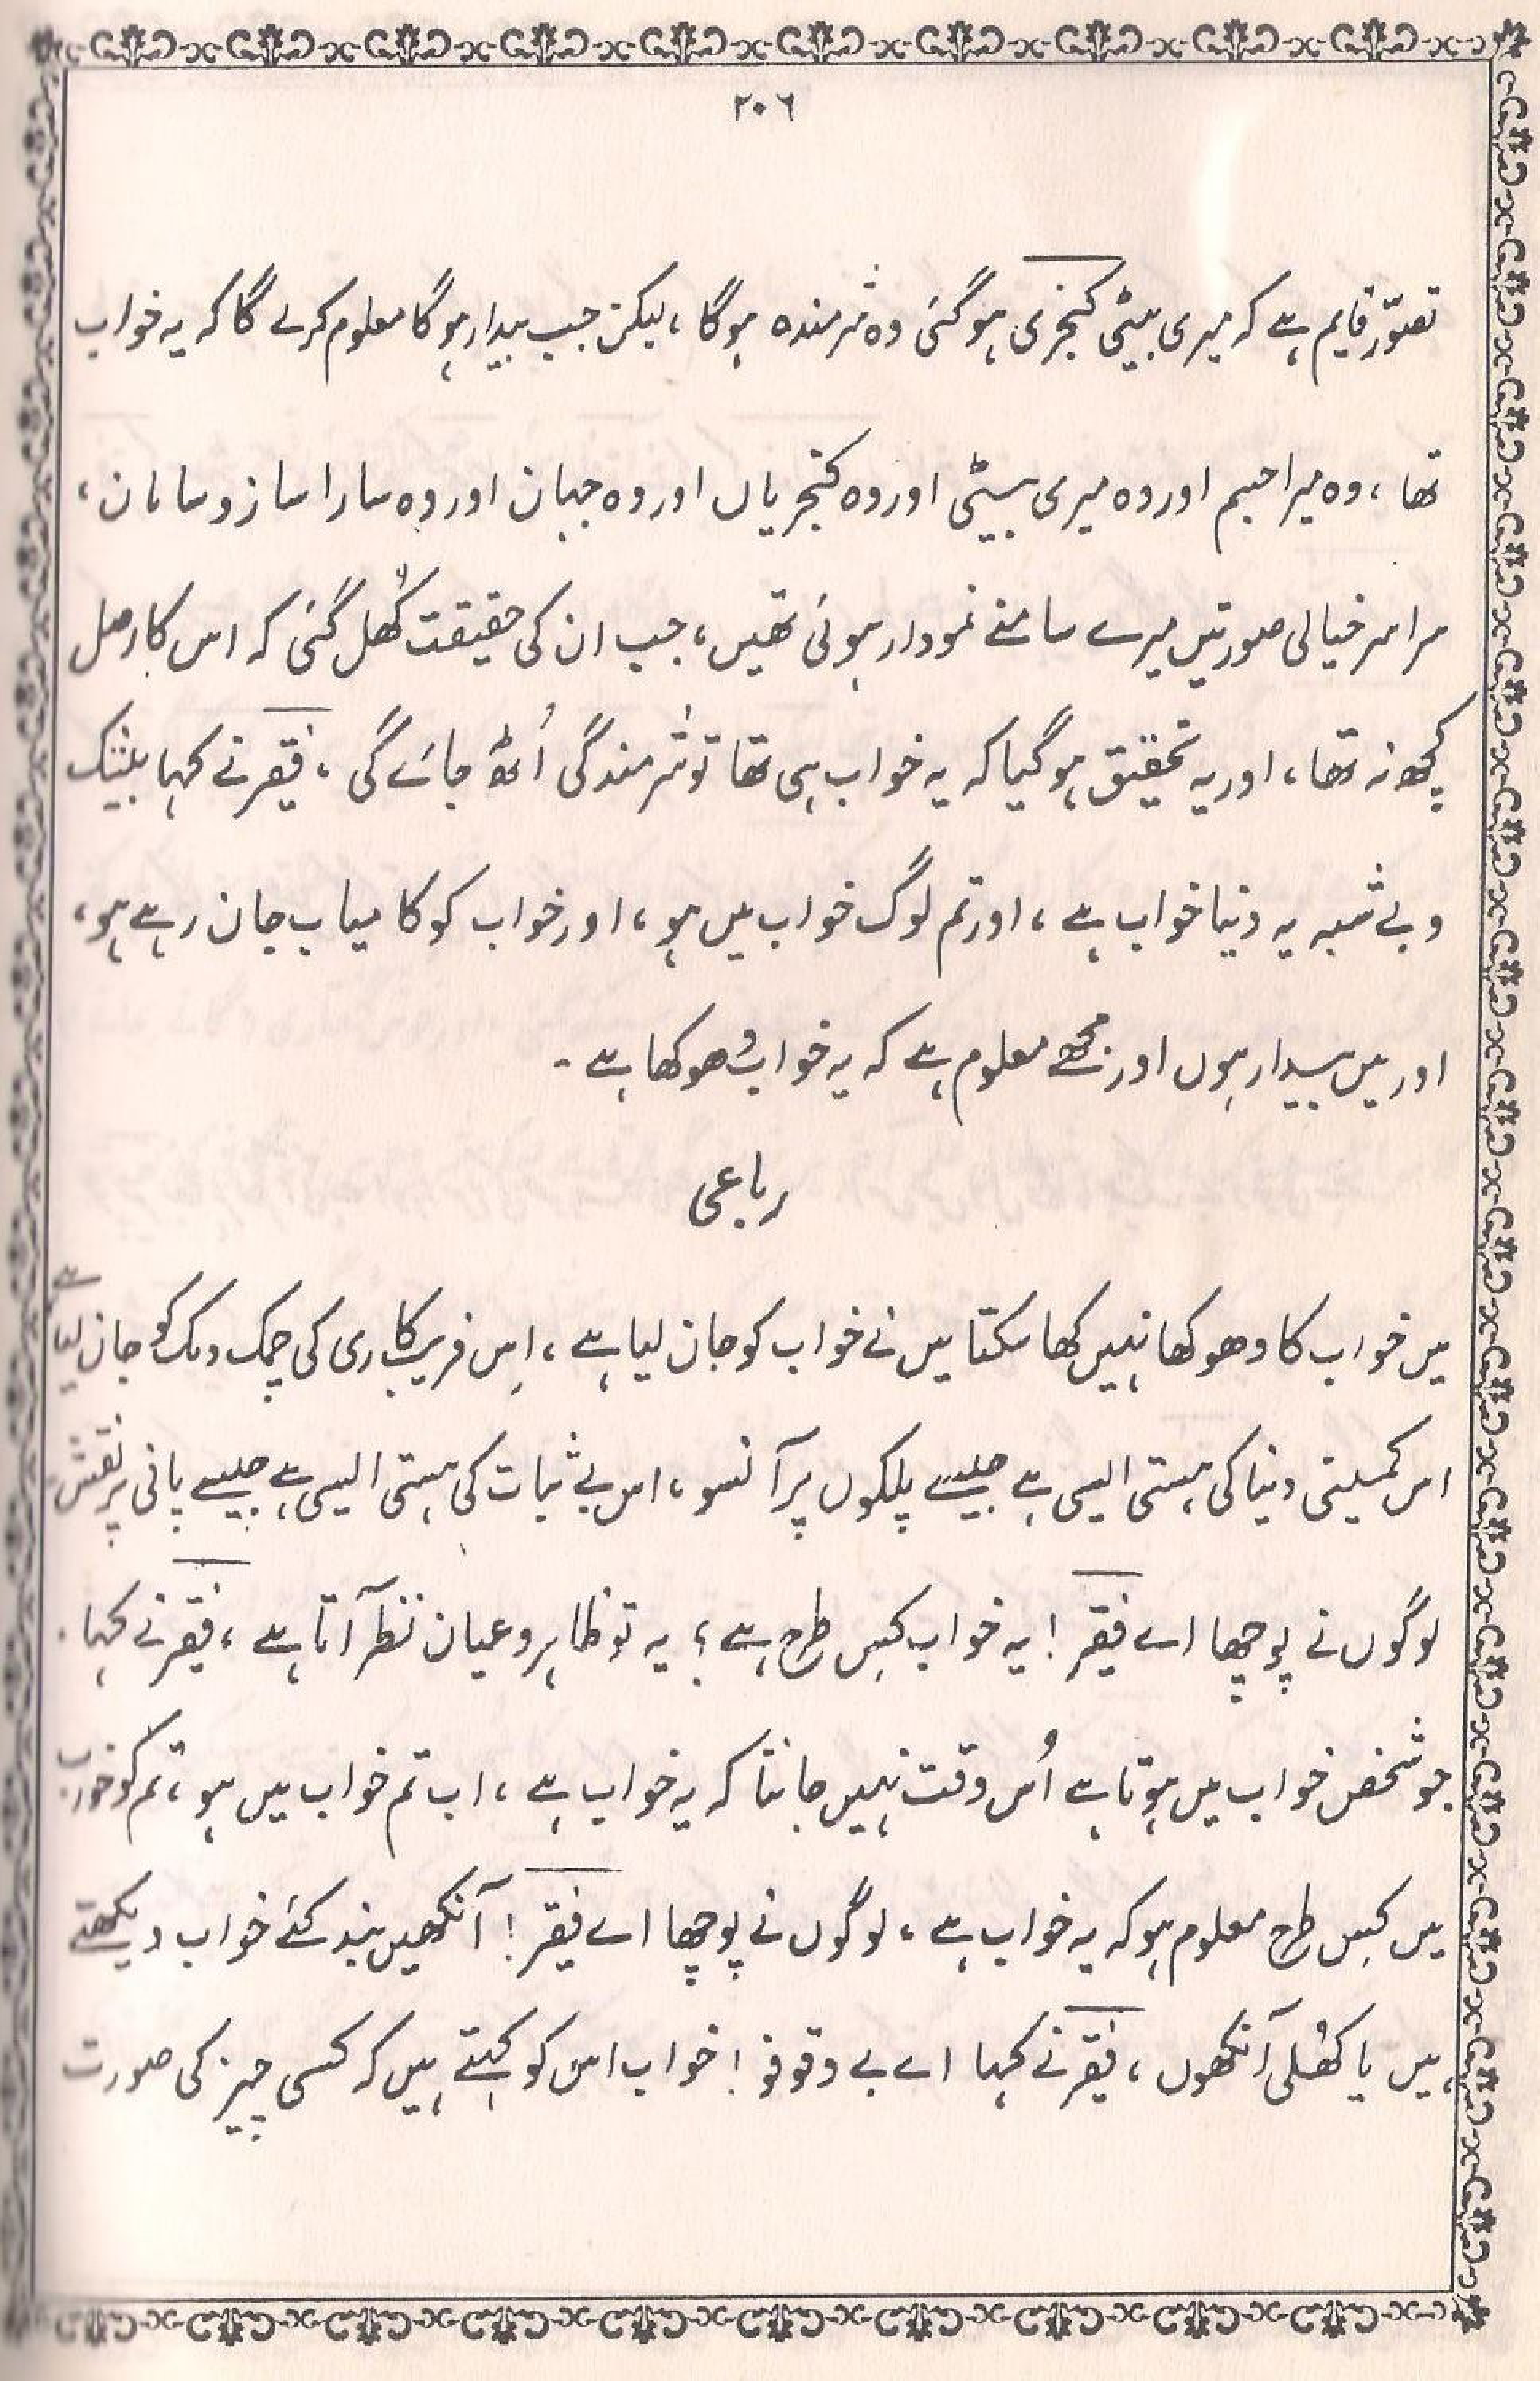 ۲۰۶
تصوّر قایم ہے کہ میری بیٹی کنجری ہو گئی وہ شرمندہ ہوگا ، لیکن جب بیدار ہوگا معلوم کرلے گا کہ یہ خواب
تھا ، وہ میرا جسم اور وہ میری بیٹی اور وہ کنجریاں اور وہ جہان اور وہ سارا ساز و سامان ،
سراسر خیالی صورتیں میرے سامنے نمودار ہوئی تھیں ، جب ان کی حقیقت کُھل گئی کہ اس کا اصل
کچھ نہ تھا ، اور یہ تحقیق ہو گیا کہ یہ خواب ہی تھا تو شرمندگی اُٹھ جائے گی ، فقیر نے کہا بیشک
و بے شبہ یہ دنیا خواب ہے ، اور تم لوگ خواب میں ہو ، اور خواب کو کامیاب جان رہے ہو ،
اور میں بیدار ہوں اور مجھے معلوم ہے کہ یہ خواب دھوکھا ہے -
رباعی
میں خواب کا دھوکھا نہیں کھا سکتا میں نے خواب کو جان لیا ہے ، اِس فریب کاری کی چمک دمک کو جان لیا ہے
اس کمینی دنیا کی ہستی ایسی ہے جیسے پلکوں پر آنسو ، اس بے ثبات کی ہستی ایسی ہے جیسے پانی پر نقش
لوگوں نے پوچھا اے فقیر ! یہ خواب کِس طرح ہے ؟ یہ تو ظاہر و عیان نظر آتا ہے ، فقیر نے کہا .
جو شخص خواب میں ہوتا ہے اُس وقت نہیں جانتا کہ یہ خواب ہے ، اب تم خواب میں ہو ، تم کو خواب
میں کِس طرح معلوم ہو کہ یہ خواب ہے ، لوگوں نے پوچھا اے فقیر ! آنکھیں بند کئے خواب دیکھتے
ہیں یا کھُلی آنکھوں ، فقیر نے کہا اے بے وقوفو ! خواب اس کو کہتے ہیں کہ کسی چیز کی صورت